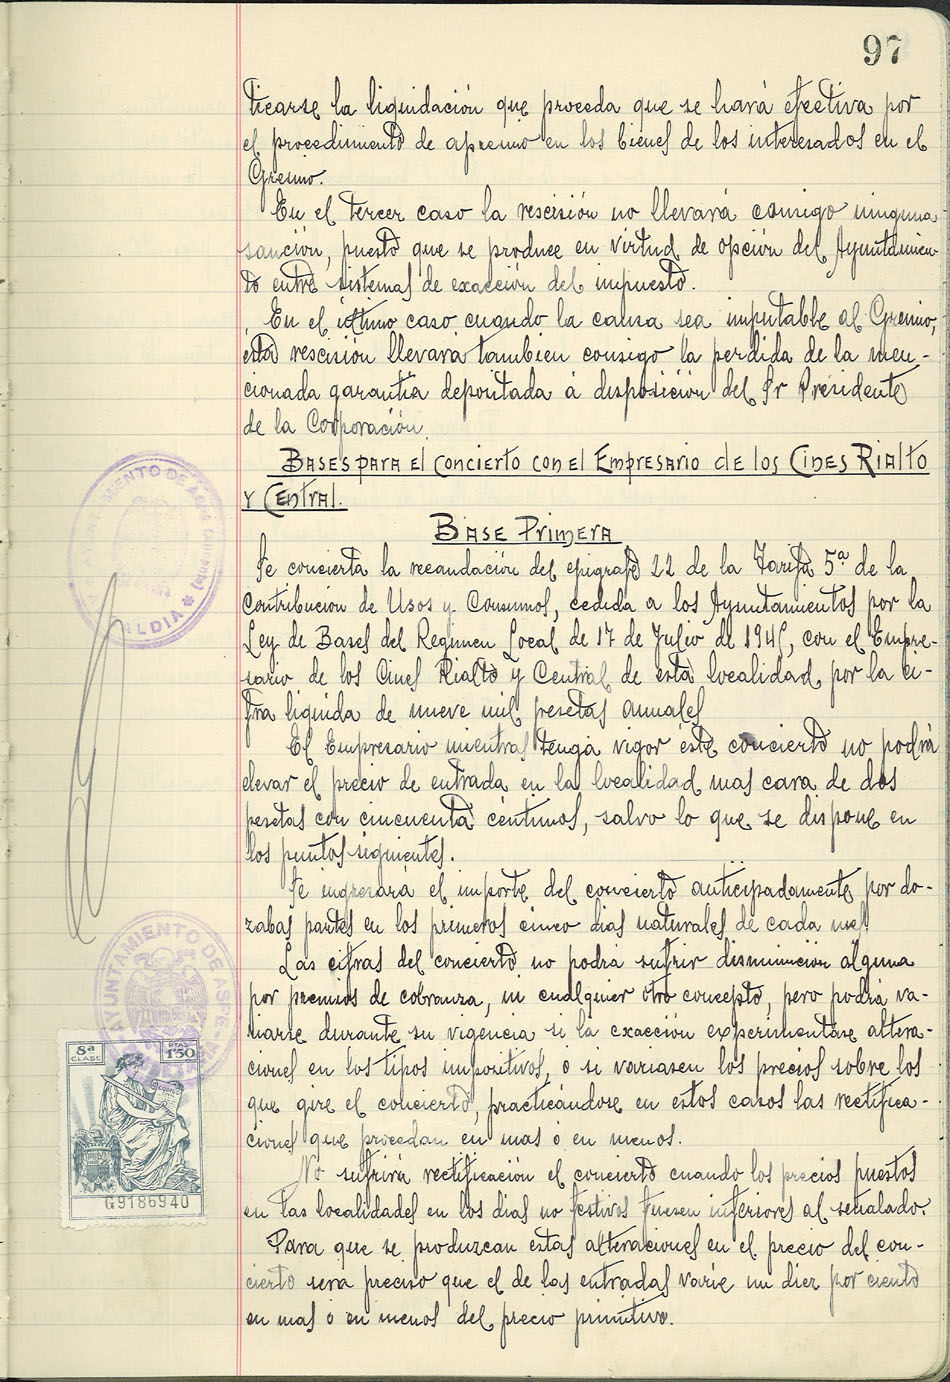 97
ticarse la liquidación que proceda que se hará efectiva por
el procedimiento de apremio en los bienes de los interesados en el
Gremio.
En el tercer caso la rescisión no llevará consigo ninguna
sanción, puesto que se produce en virtud de opción del Ayuntamien-
to entre sistemas de exacción del impuesto.
En el último caso cuando la causa sea imputable al Gremio,
esta rescisión llevará tambien consigo la perdida de la men-
cionada garantía depositada á disposición del Sr Presidente
de la Corporación.
BASES PARA El CONCIERTO CON El EMPRESARIO de los CINES RIALTO
Y CENTRAL.
BASE PRIMERA
Se concierta la recaudación del epigrafe 22 de la Tarifa 5ª de la
Contribucion de Usos y Consumos, cedida a los Ayuntamientos por la
Ley de Bases del Regimen Local de 17 de Julio de 1945, con el Empre-
sario de los Cines Rialto y Central de esta localidad, por la ci-
fra liquida de nueve mil pesetas anuales
El Empresario mientras tenga vigor éste concierto no podrá
elevar el precio de entrada en la localidad mas cara de dos
pesetas con cincuenta céntimos, salvo lo que se dispone en
los puntos siguientes.
Se ingresará el importe del concierto anticipadamente por do-
zabas partes en los primeros cinco dias naturales de cada mes
Las cifras del concierto no podrá sufrir disminucion alguna
por premios de cobranza, ni cualquier otro concepto, pero podrá va-
riarse durante su vigencia si la exacción experimentáse altera-
ciones en los tipos impositivos, ó si variasen los precios sobre los
que gire el concierto, practicándose en estos casos las rectifica-
ciones que procedan en mas ó en menos.
No sufrirá rectificación el concierto cuando los precios puestos
en las localidades en los dias no festivos fuesen inferiores al señalado.
Para que se produzcan estas alteraciones en el precio del con-
cierto será preciso que el de las entradas varíe un diez por ciento
en mas ó en menos del precio primitivo.
AYUNTAMIENTO DE ASPE
ALCALDIA
AYUNTAMIENTO DE ASPE
8ª CLASE
PTAS 1'50
G9186940